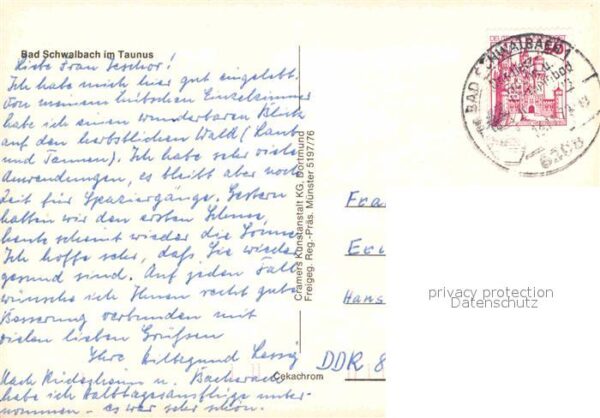 Bad Schwalbach im Taunus
Liebe Frau
Ich habe mich hier gut eingelebt.
Von meinem hübschen Einzelzimmer
habe ich einen wunderbaren Blick
auf den herbstlichen Wald (Laub
und Tannen). Ich habe sehr viele
Anwendungen, es bleibt aber noch
Zeit für Spaziergänge. Gestern
hatten wir den ersten
heute scheint wieder die Sonne.
Ich hoffe sehr, daß Sie wieder
gesund sind. Auf jeden Fall
wünsche ich Ihnen recht gute
Besserung verbunden mit
vielen lieben Grüßen
Ihre Hildegund
Nach Rüdesheim u. Bacharach
habe ich Halbtagsausflüge unter-
nommen - es war sehr schön.
Cramers Kunstanstalt KG, Dortmund
Freigeg. Reg.-Präs. Münster 5197/76
Cekachrom
BAD SCHWALBACH
6208
Fra
Eri
Hans
DDR 8
privacy protection
Datenschutz